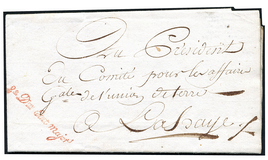 Au Président
Du Comité pour les affaires
Gales de l'union de terre
a La haye